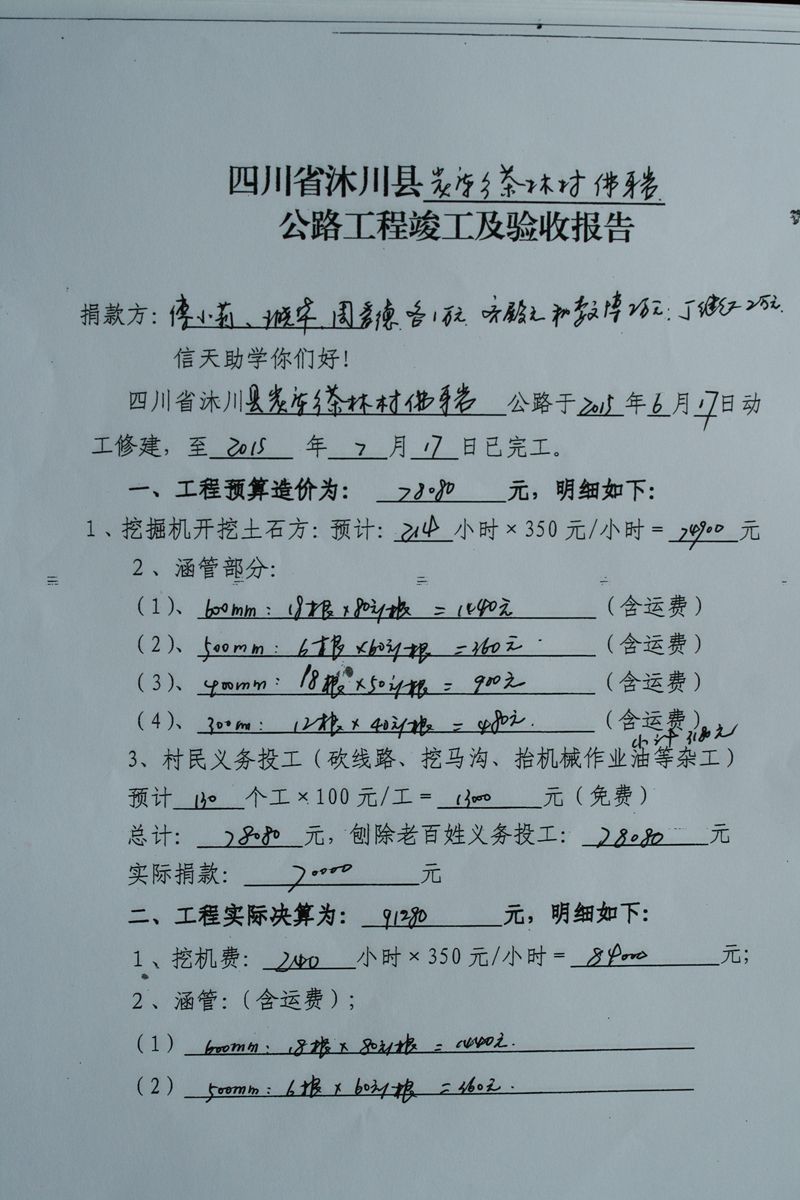 四川省沐川县炭库乡茶林村佛耳岩
公路工程竣工及验收报告
捐款方：傅小莉、晓华、周彦德各1万元 齐殿元和李文博2万元；丁继红2万元
信天助学你们好！
四川省沐川县炭库乡茶林村佛耳岩 公路于2015年6月17日动
工修建，至 2015 年 7 月 17 日已完工。
一、工程预算造价为： 78080 元，明细如下：
1、挖掘机开挖土石方：预计：214小时×350元/小时＝74900元
2、涵管部分：
（1）、600mm：18根×80元/根＝1440元（含运费）
（2）、500mm：6根×60元/根＝360元（含运费）
（3）、400mm：18根×50元/根＝900元（含运费）
（4）、300m：12根×40元/根＝480元.（含运费）
小计3180元
3、村民义务投工（砍线路、挖马沟、抬机械作业油等杂工）
预计 130 个工×100元/工＝ 13000 元（免费）
总计： 78080 元，刨除老百姓义务投工： 78080 元
实际捐款： 70000 元
二、工程实际决算为： 91280 元，明细如下：
1、挖机费： 240 小时×350元/小时＝ 84000 元；
2、涵管：（含运费）；
（1）600mm：18根×80元/根＝1440元.
（2）500mm：6根×60元/根＝360元.